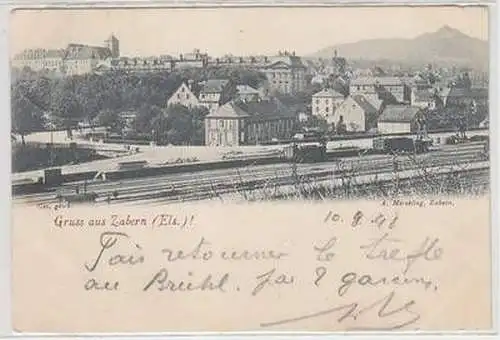 Ges. gesch.
A. Merckling, Zabern.
Gruss aus Zabern (Els.)!
10. 9. 98
fais retourner le trefle
au Brühl. j'ai 2 garçons,